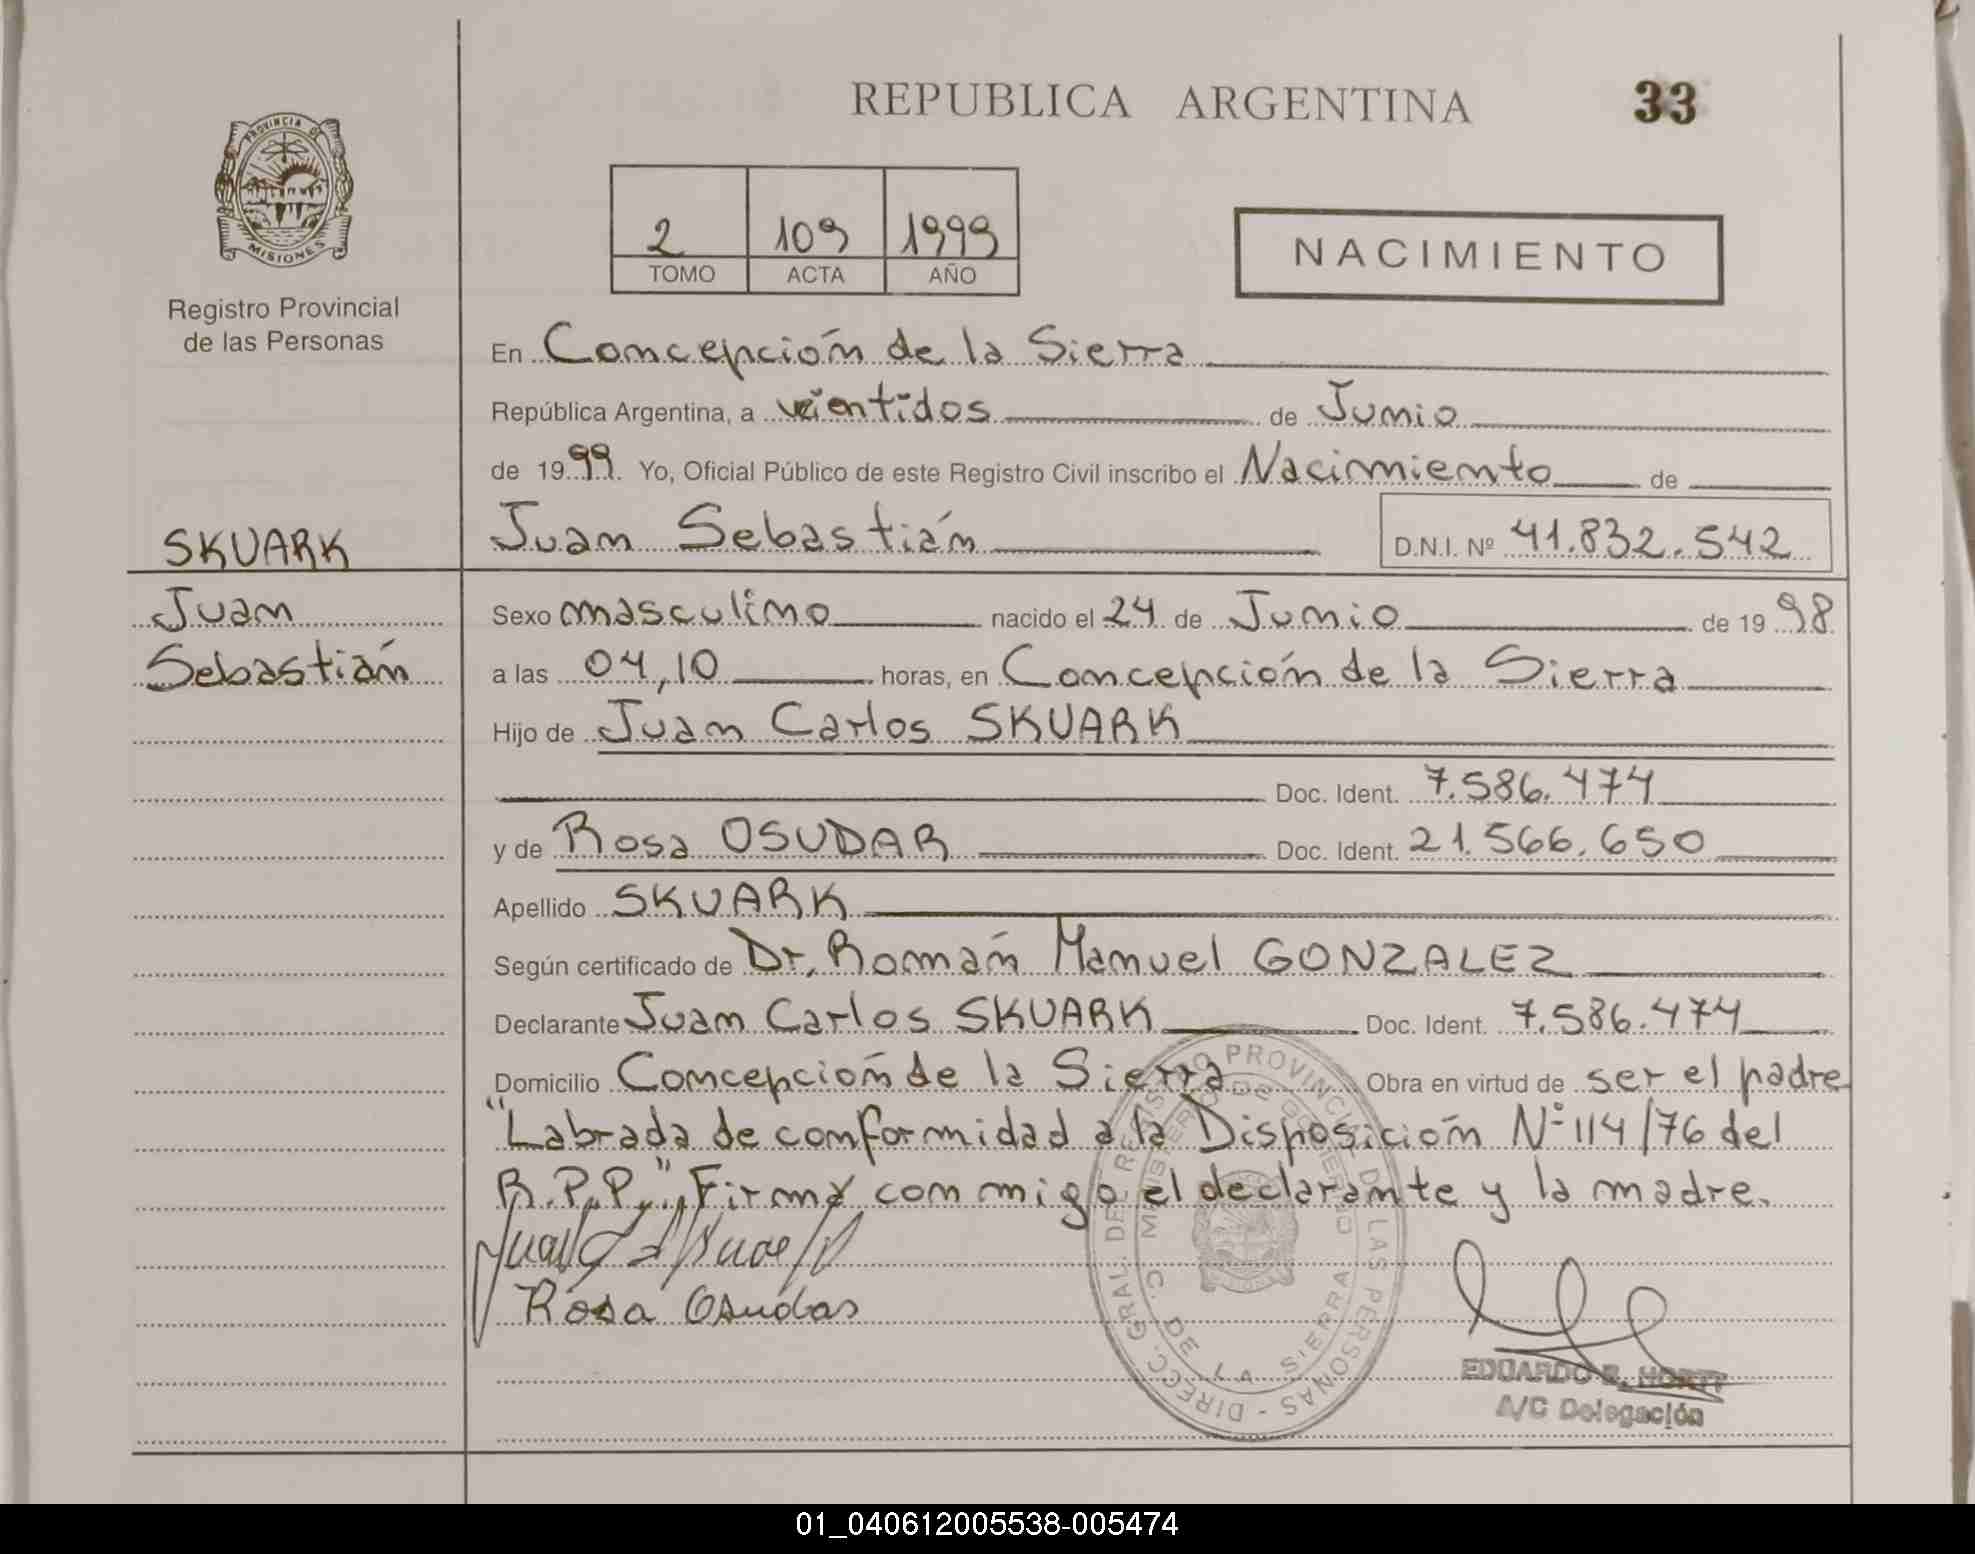 REPUBLICA ARGENTINA 33
PROVINCIA DE
MISIONES
Registro Provincial
de las Personas
2 109 1999
TOMO ACTA AÑO
NACIMIENTO
En Concepción de la Sierra
República Argentina, a veintidos de Junio
de 1999 Yo, Oficial Público de este Registro Civil inscribo el Nacimiento de
SKUARK
Juan Sebastián D.N.I. Nº 41.832.542
Juan
Sebastián
Sexo masculino nacido el 24 de Junio de 1998
a las 04,10 horas, en Concepción de la Sierra
Hijo de Juan Carlos SKUARK
Doc. Ident. 7.586.474
y de Rosa OSUDAR Doc. Ident. 21.566.650
Apellido SKUARK
Según certificado de Dr, Román Manuel GONZALEZ
Declarante Juan Carlos SKUARK Doc. Ident. 7.586.474
Domicilio Concepción de la Sierra Obra en virtud de ser el padre
"Labrada de conformidad a la Disposición Nº 114/76 del
R.P.P.", Firma conmigo el declarante y la madre.
Rosa Osudar
DIRECC. GRAL. DEL REGISTRO PROVINCIAL DE LAS PERSONAS -
MINISTERIO DE GOBIERNO
C. DE LA SIERRA
EDUARDO
A/C Delegación
01_040612005538-005474